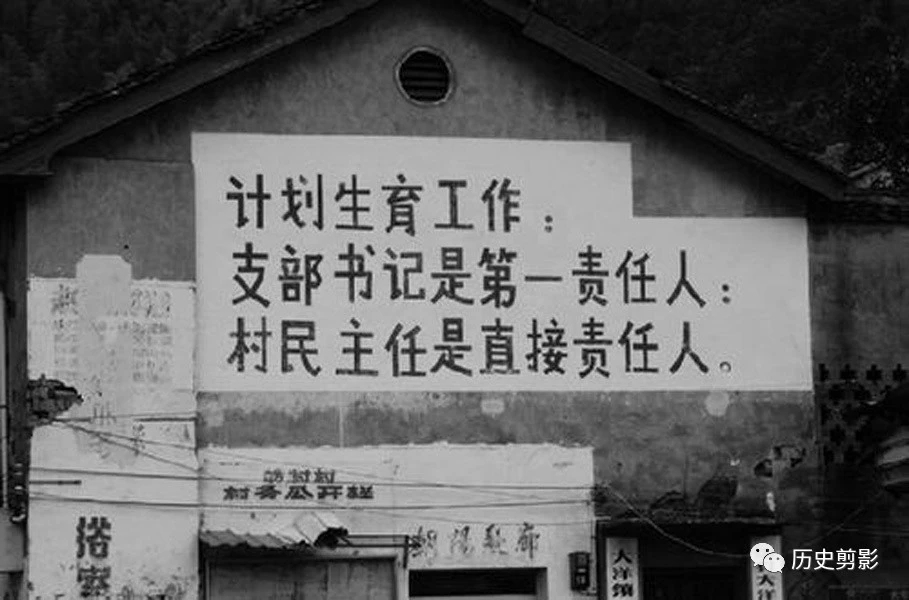 计划生育工作：
支部书记是第一责任人：
村民主任是直接责任人。
村务公开栏
朝阳歌廊
浴室
大洋馆
大洋
历史剪影